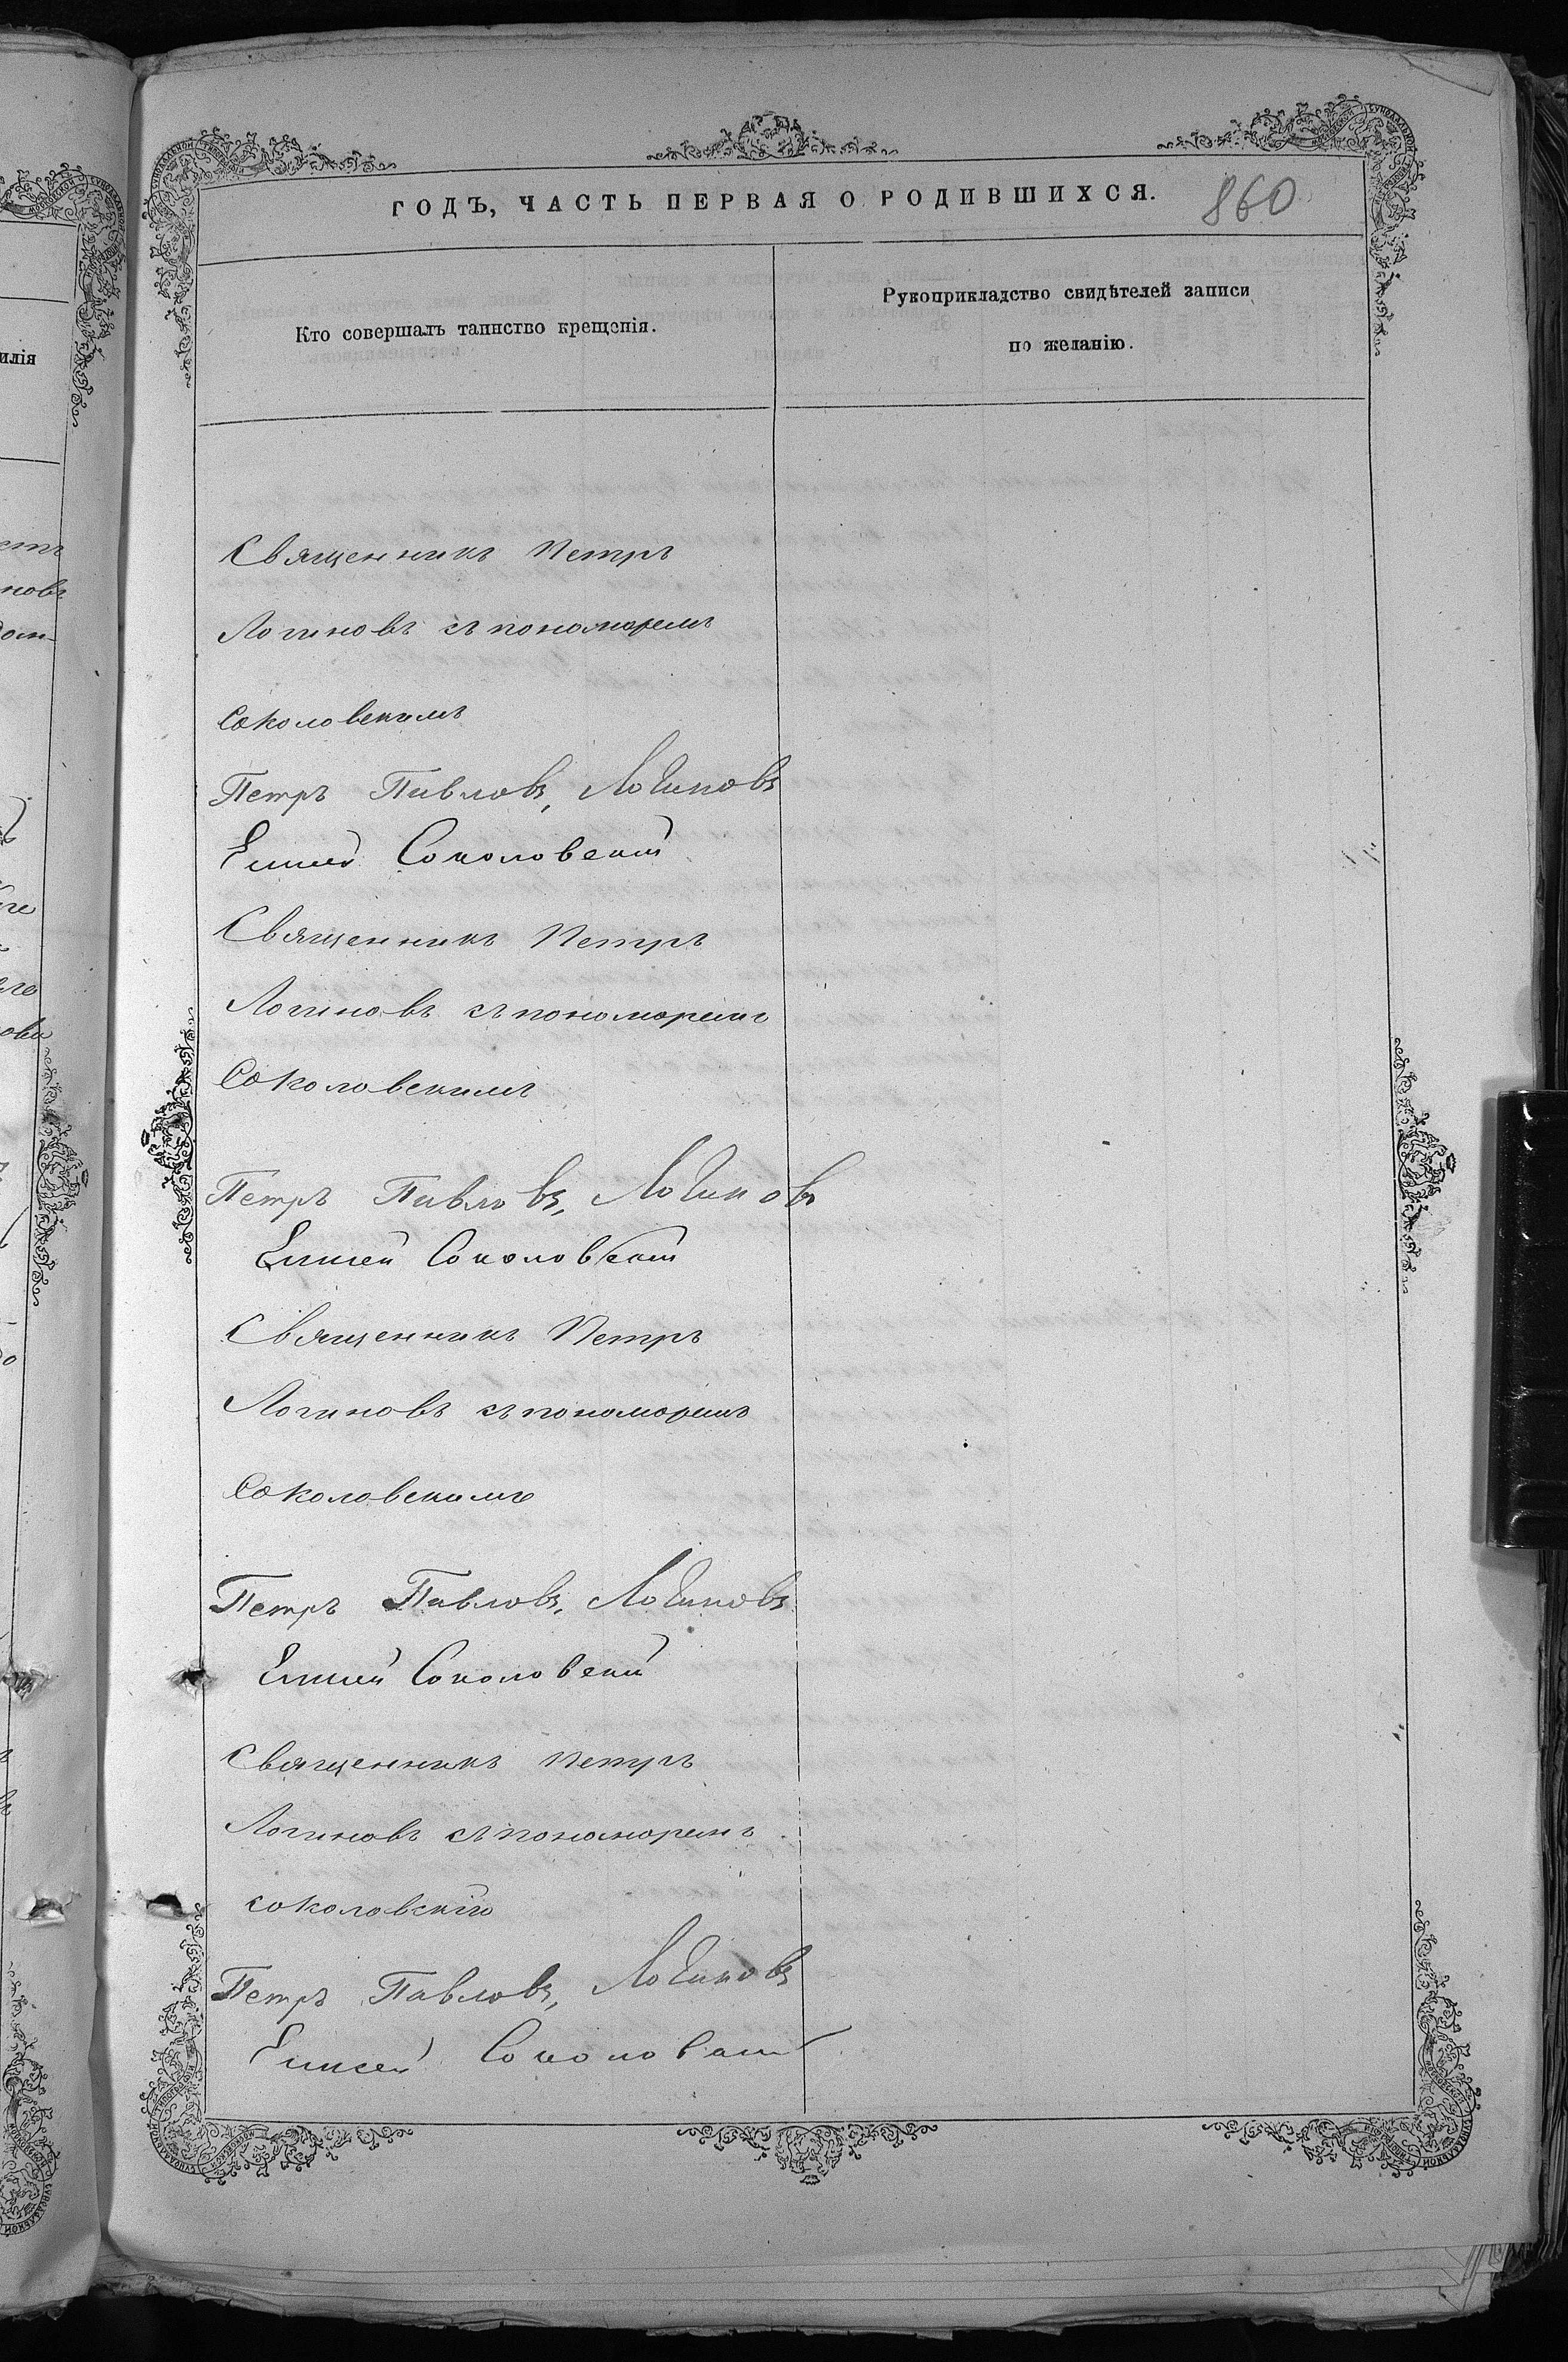 ГОДЪ, ЧАСТЬ ПЕРВАЯ О РОДИВШИХСЯ.
860
Кто совершалъ таинство крещенія.
Рукоприкладство свидѣтелей записи
по желанію.
илія
Священникъ Петръ
Логиновъ съ пономоремъ
Соколовскимъ
Петръ Павловъ, Логиновъ
Елисей Соколовскій
Священникъ Петръ
Логиновъ съ пономоремъ
Соколовскимъ
Петръ Павловъ, Логиновъ
Елисей Соколовскій
Священникъ Петръ
Логиновъ съ пономоремъ
Соколовскимъ
Петръ Павловъ, Логиновъ
Елисей Соколовскій
Священникъ Петръ
Логиновъ съ пономоремъ
соколовскім
Петръ Павловъ, Логиновъ
Елисей Соколовскій